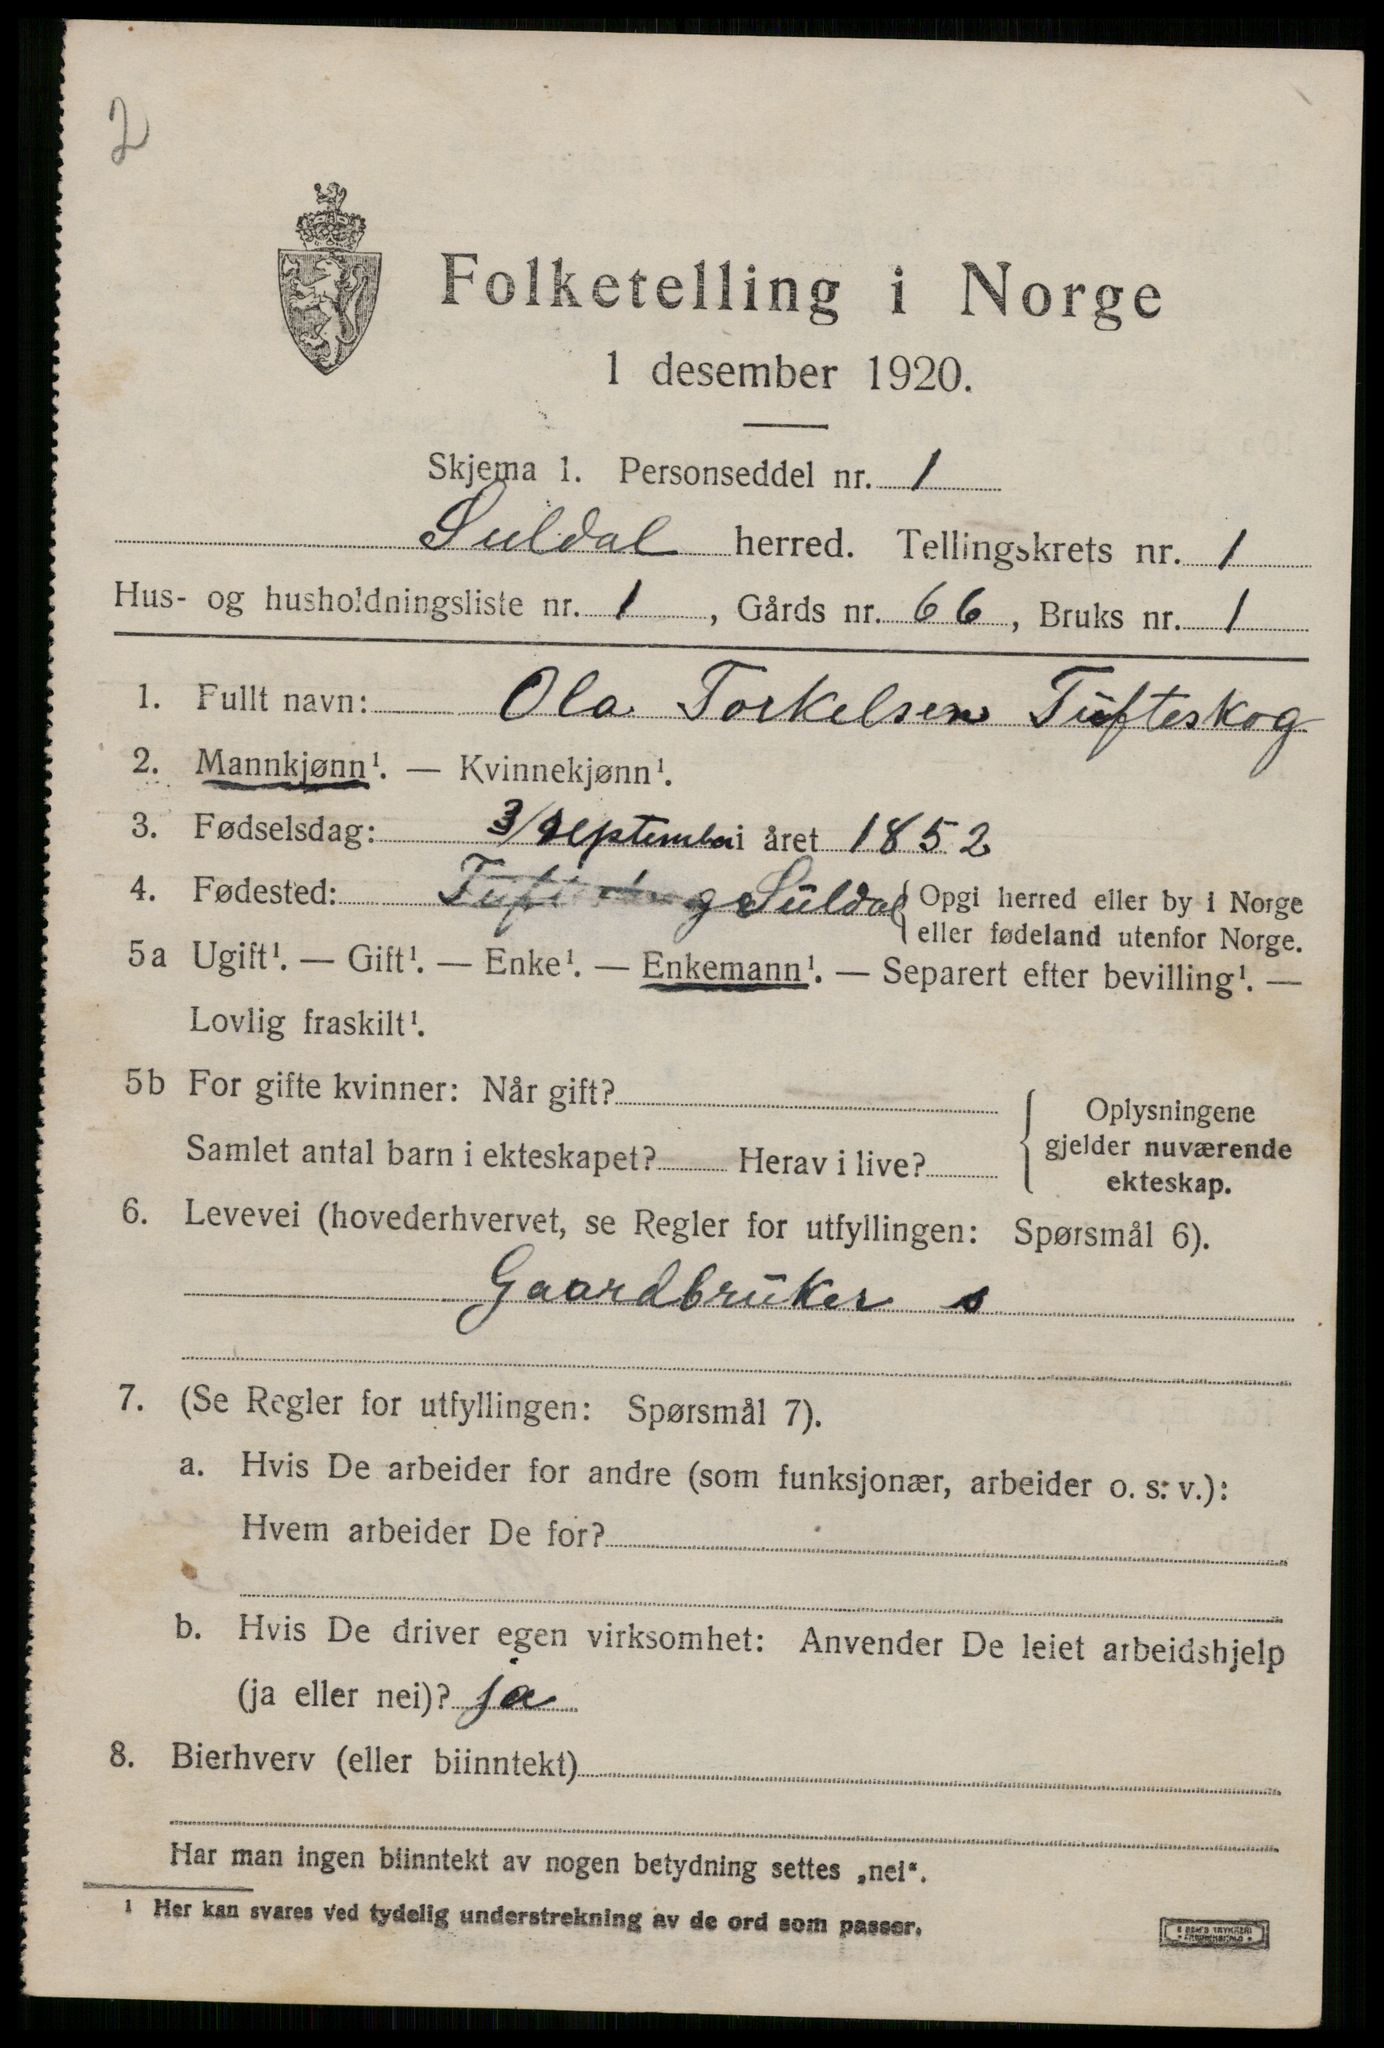 2
Folketelling i Norge
1 desember 1920.
Skjema 1. Personseddel nr. 1
Suldal herred. Tellingskrets nr. 1
Hus- og husholdningsliste nr. 1, Gårds nr. 66, Bruks nr. 1
1. Fullt navn: Ola Torkelsen Tufteskog
2. Mannkjønn¹. — Kvinnekjønn¹.
3. Fødselsdag: 3/september i året 1852
4. Fødested: Suldal { Opgi herred eller by i Norge
eller fødeland utenfor Norge.
5a Ugift¹. — Gift¹. — Enke¹. — Enkemann¹. — Separert efter bevilling¹. —
Lovlig fraskilt¹.
5b For gifte kvinner: Når gift?
Samlet antal barn i ekteskapet? Herav i live?
{ Oplysningene
gjelder nuværende
ekteskap.
6. Levevei (hovederhvervet, se Regler for utfyllingen: Spørsmål 6).
Gaardbruker s
7. (Se Regler for utfyllingen: Spørsmål 7).
a. Hvis De arbeider for andre (som funksjonær, arbeider o. s. v.):
Hvem arbeider De for?
b. Hvis De driver egen virksomhet: Anvender De leiet arbeidshjelp
(ja eller nei)? ja
8. Bierhverv (eller biinntekt)
Har man ingen biinntekt av nogen betydning settes „nei“.
¹ Her kan svares ved tydelig understrekning av de ord som passer.